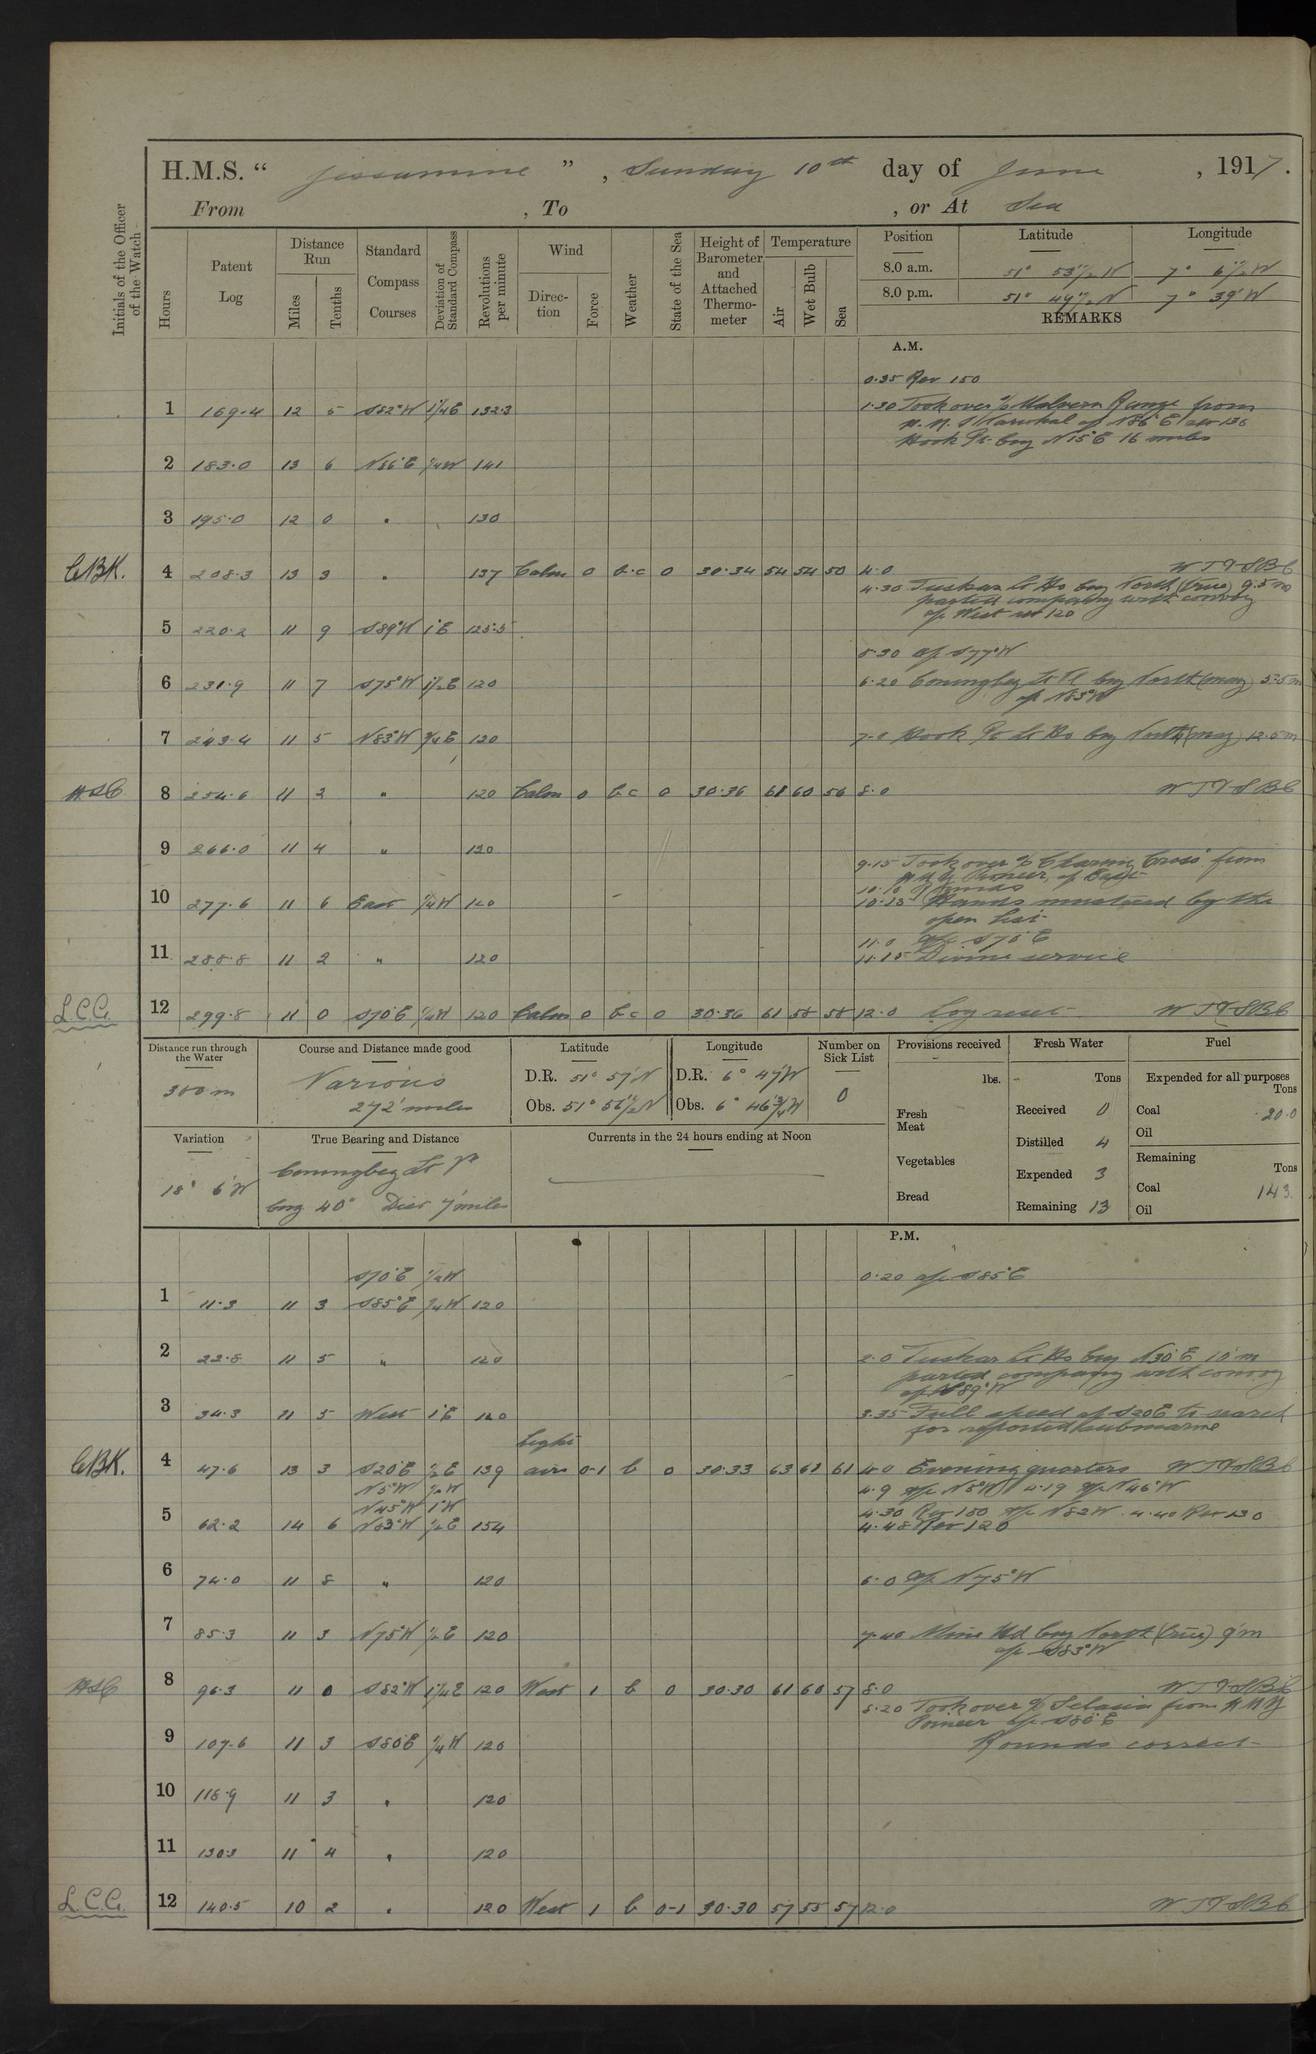 H.M.S. " Jessamine ", Sunday 10th day of June, 1917.
From , To , or At Sea
Initials of the Officer of the Watch
Hours
Patent Log
Distance Run
Miles
Tenths
Standard Compass Courses
Deviation of Standard Compass
Revolutions per minute
Wind
Direction
Force
Weather
State of the Sea
Height of Barometer and Attached Thermometer
Temperature
Air
Wet Bulb
Sea
Position Latitude Longitude
8.0 a.m. 51° 53½'N 7° 6½'W
8.0 p.m. 51° 49½'N 7° 39'W
REMARKS
A.M.
0.35 Rev 150
1 169.4 12 5 S82°W 1¼E 132.3 1.30 Took over S/S Malvern Range from
H.M.S Narwhal a/c N86°E rev 136
Hook Pt. brg N15°E 16 miles
2 183.0 13 6 N86°E ¼W 141
3 195.0 12 0 " 130
CBK. 4 208.3 13 3 " 137 Calm 0 b.c 0 30.34 54 54 50 4.0 WTTSBC
4.30 Tuskar Lt Ho brg North (true) 9.5 m
parted company with convoy
a/c West rev 120
5 220.2 11 9 S89°W 1°E 125.5
5.30 a/c S77°W
6 231.9 11 7 S75°W 1½E 120 6.20 Coningbeg Lt V. brg North (mag) 3.25 m
a/c N83°W
7 243.4 11 5 N83°W ¾E 120 7.0 Hook Pt Lt Ho brg North (mag) 12.5 m
HSC 8 254.6 11 2 " 120 Calm 0 b.c 0 30.36 61 60 56 8.0 WTTSBC
9 266.0 11 4 " 120
9.15 Took over S/S Charing Cross from
HMY Pioneer, a/c East
10.10 Rounds
10 277.6 11 6 East ¼W 120 10.15 Hands mustered by the
open list
11.0 a/c S70°E
11 288.8 11 2 " 120 11.15 Divine service
L.C.C. 12 299.8 11 0 S70°E ½W 120 Calm 0 b.c 0 30.36 61 58 58 12.0 Log reset WTTSBC
Distance run through the Water
300 m
Course and Distance made good
Various
272' miles
Latitude
D.R. 51° 57'N
Obs. 51° 56½'N
Longitude
D.R. 6° 47'W
Obs. 6° 46¾'W
Number on Sick List
0
Provisions received
lbs.
Fresh Meat
Vegetables
Bread
Fresh Water
Tons
Received 0
Distilled 4
Expended 3
Remaining 13
Fuel
Expended for all purposes
Tons
Coal 20.0
Oil
Remaining
Tons
Coal 143.
Oil
Variation
18° 6'W
True Bearing and Distance
Coningbeg Lt Vl
brg 40° Dist 7' miles
Currents in the 24 hours ending at Noon
P.M.
S70°E ½W 0.20 a/c S85°E
1 11.3 11 3 S85°E ¼W 120
2 22.8 11 5 " 120 2.0 Tuskar Lt Ho brg N30°E 10'm
parted company with convoy
a/c S89°W
3 34.3 11 5 West 1°E 120 3.35 Full speed a/c S20E to search
for reported submarine
CBK. 4 47.6 13 3 S20°E ½E 139 Light airs 0-1 b 0 30.33 63 62 61 4.0 Evening quarters WTTSBC
N5°W ½W 4.9 a/c N5°W 4.19 a/c N46°W
N45°W 1°W
5 62.2 14 6 N83°W ½E 154 4.30 Rev 150 a/c N82W. 4.40 Rev 130
4.48 Rev 120
6 74.0 11 8 " 120 6.0 a/c N75°W
7 85.3 11 3 N75°W ½E 120 7.40 Mine Hd brg North (true) 9'm
a/c S83°W
HSC 8 96.3 11 0 S82°W 1¼E 120 West 1 b 0 30.30 61 60 57 8.0 WTTSBC
8.20 Took over S/S Selasia from HMY
Pioneer a/c S80°E
9 107.6 11 3 S80E ¼W 120 Rounds correct
10 118.9 11 3 " 120
11 130.3 11 4 " 120
L.C.C. 12 140.5 10 2 " 120 West 1 b 0-1 30.30 57 55 57 12.0 WTTSBC